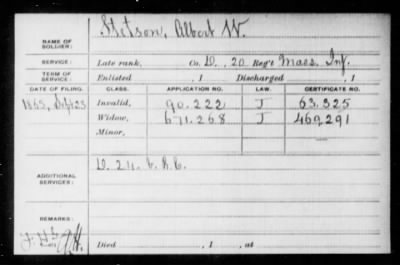 NAME OF SOLDIER: Stetson, Albert W.
SERVICE: Late rank, Co. D, 20 Reg't Mass. Inf.
TERM OF SERVICE: Enlisted , 1 Discharged , 1
DATE OF FILING. CLASS. APPLICATION NO. LAW. CERTIFICATE NO.
1865, Sept 23 Invalid, 90.222 J 63.325
Widow, 671.268 J 469,291
Minor,
ADDITIONAL SERVICES: D. 24.
REMARKS:
Died , 1 , at